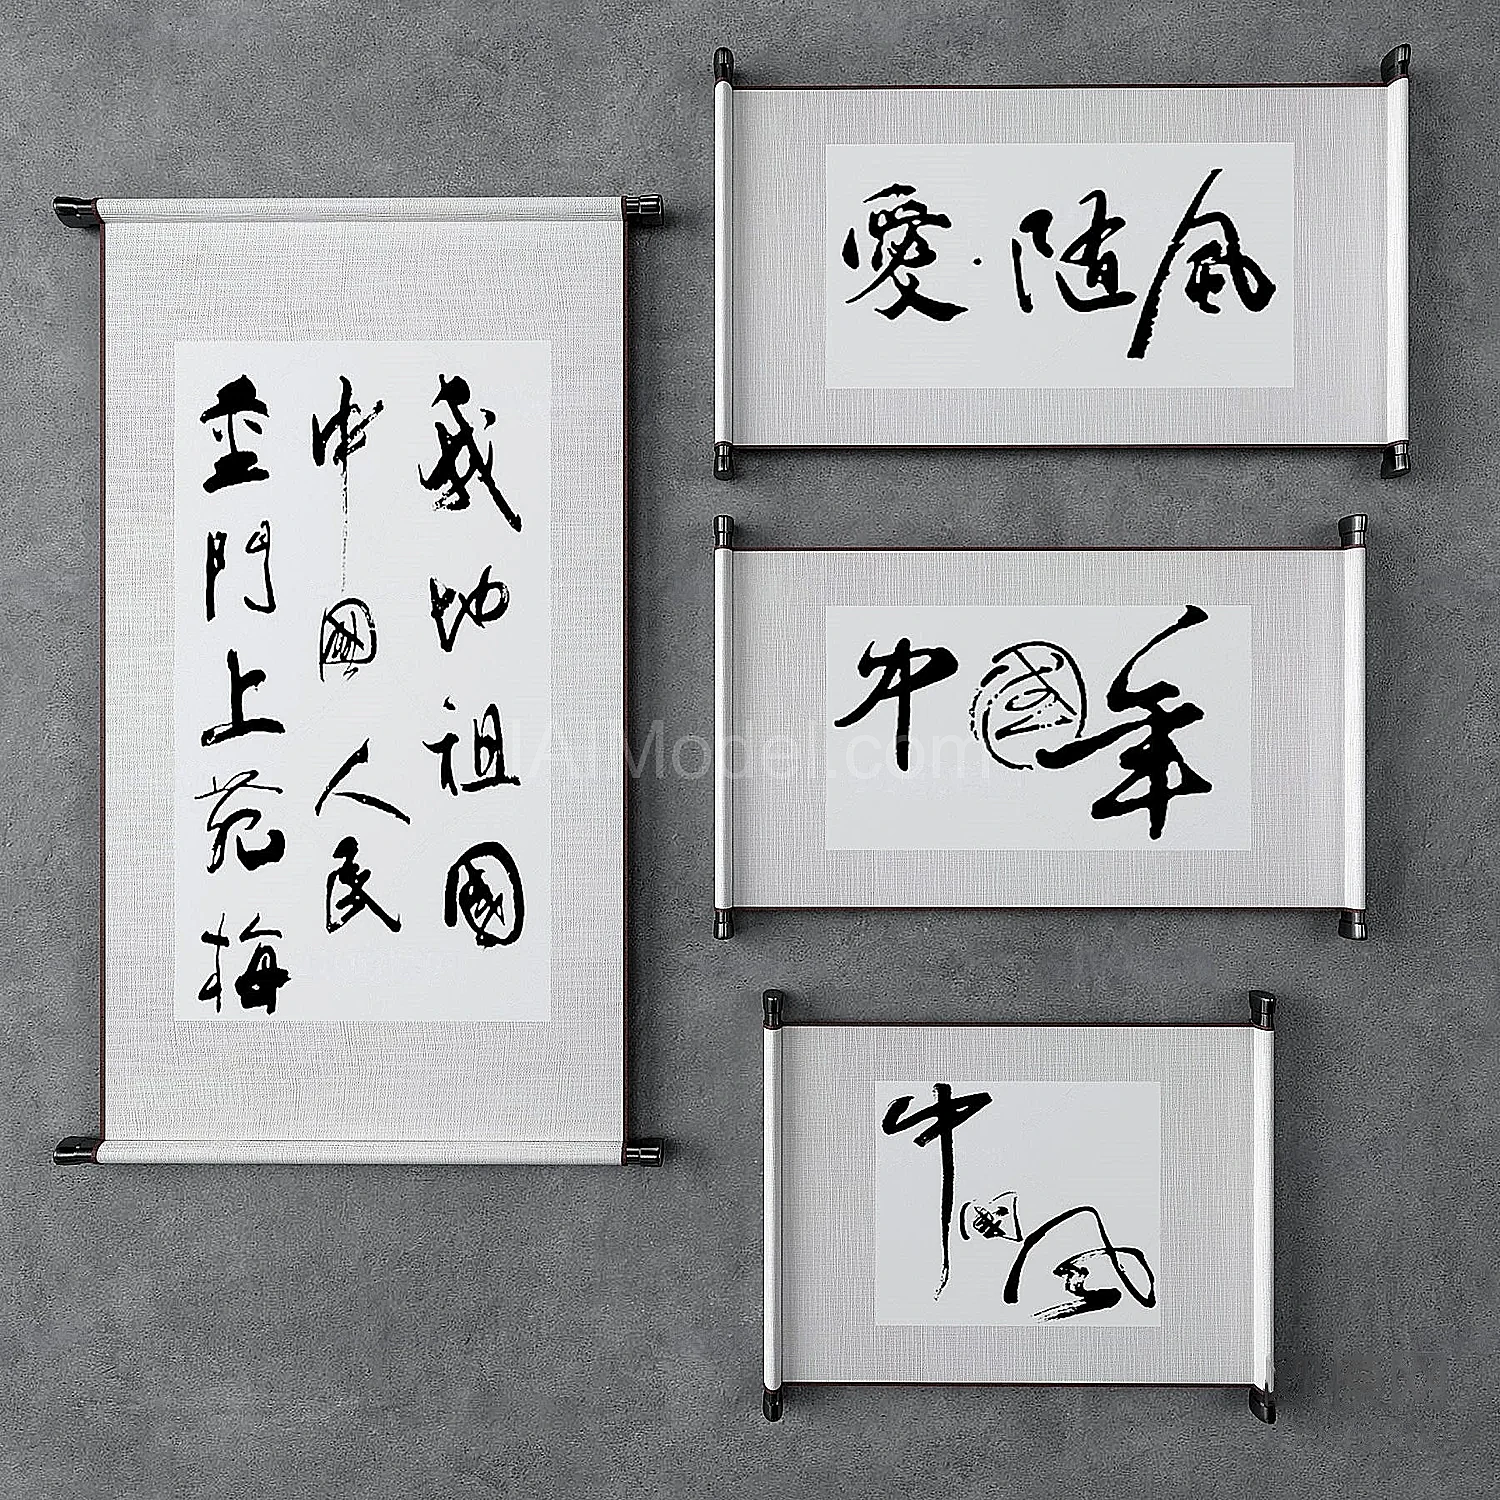 我的祖國
中國人民
門上苑梅
愛·随風
中國年
中國風